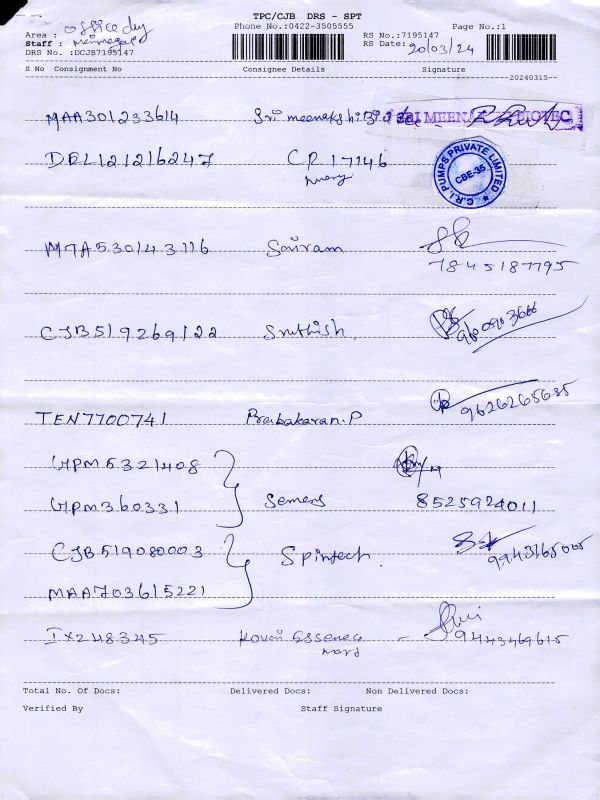 TPC/CJB DRS - SPT
Area : office dly Phone No.:0422-3505555 RS No.:7195147 Page No.:1
Staff : RS Date: 20/03/24
DRS No. :DCJB7195147
S No Consignment No Consignee Details Signature
20240315
MAA301233614 Sri meenakshi Bio SRI MEENA BIOTEC
DEL121216247 CR 17146
C.R.I. PUMPS PRIVATE LIMITED CBE-35
MTA530143116 Sairam
7845187795
CJB519269122 Sruthish.
TEN7700741 Prabakaran.P 9626265685
UPM5321408
UPM360331 Semens 8525924011
CJB519080003 Spintech. 9943165005
MAA703615221
IX248345 Kovai Essence 9443469615
Total No. Of Docs: Delivered Docs: Non Delivered Docs:
Verified By Staff Signature